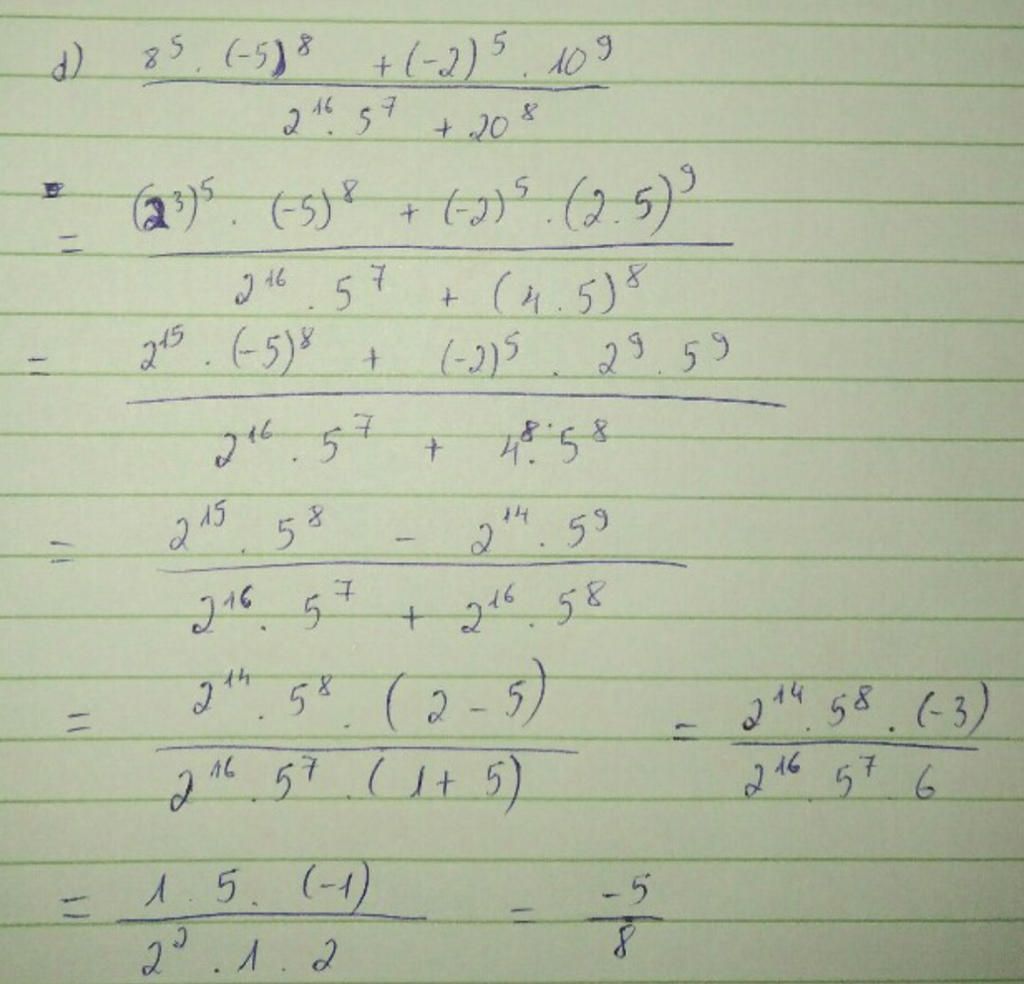 d) 8^5 . (-5)^8 + (-2)^5 . 10^9
2^16 . 5^7 + 20^8
= (2^3)^5 . (-5)^8 + (-2)^5 . (2.5)^9
2^16 . 5^7 + (4.5)^8
= 2^15 . (-5)^8 + (-2)^5 . 2^9 . 5^9
2^16 . 5^7 + 4^8 . 5^8
= 2^15 . 5^8 - 2^14 . 5^9
2^16 . 5^7 + 2^16 . 5^8
= 2^14 . 5^8 . (2 - 5) = 2^14 . 5^8 . (-3)
2^16 . 5^7 . (1 + 5) 2^16 5^7 6
= 1 . 5 . (-1) = -5
2^2 . 1 . 2 8